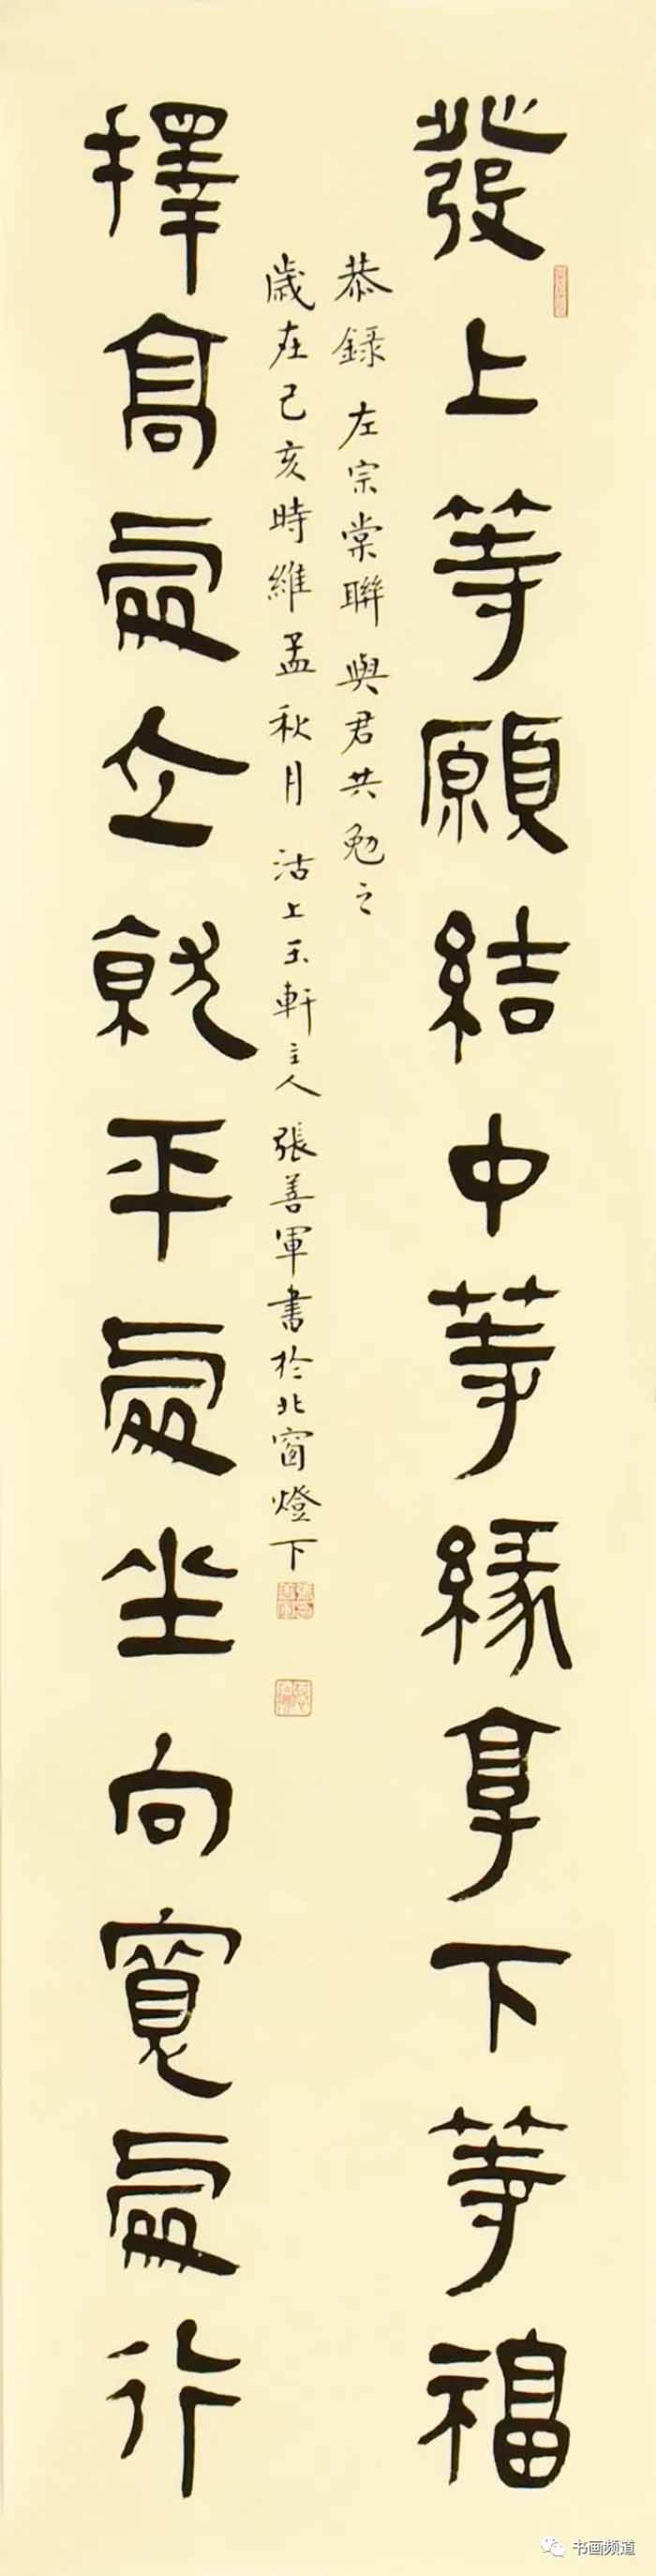 發上等願結中等緣享下等福
恭錄 左宗棠聯 與君共勉之
歲在己亥時維孟秋月 沽上玉軒主人 張善軍書於北窗燈下
擇高處立就平處坐向寬處行
书画频道